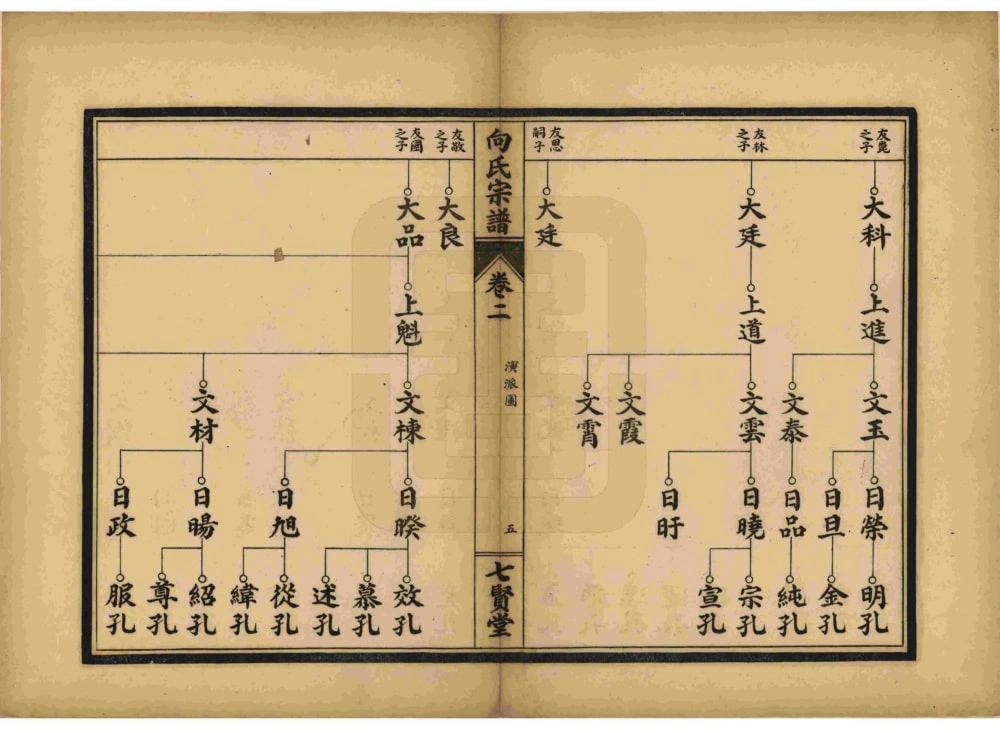 友崑之子
大科
上進
文玉
文泰
日榮
日旦
日品
明孔
金孔
純孔
友林之子
大廷
上道
文雲
文霞
文霄
日曉
日旴
宗孔
宣孔
友思嗣子
大廷
向氏宗譜
卷二
演派圖
五
七賢堂
友敬之子
大良
友國之子
大品
上魁
文棟
文材
日暌
日旭
日暘
日政
效孔
慕孔
述孔
從孔
緯孔
紹孔
尊孔
服孔